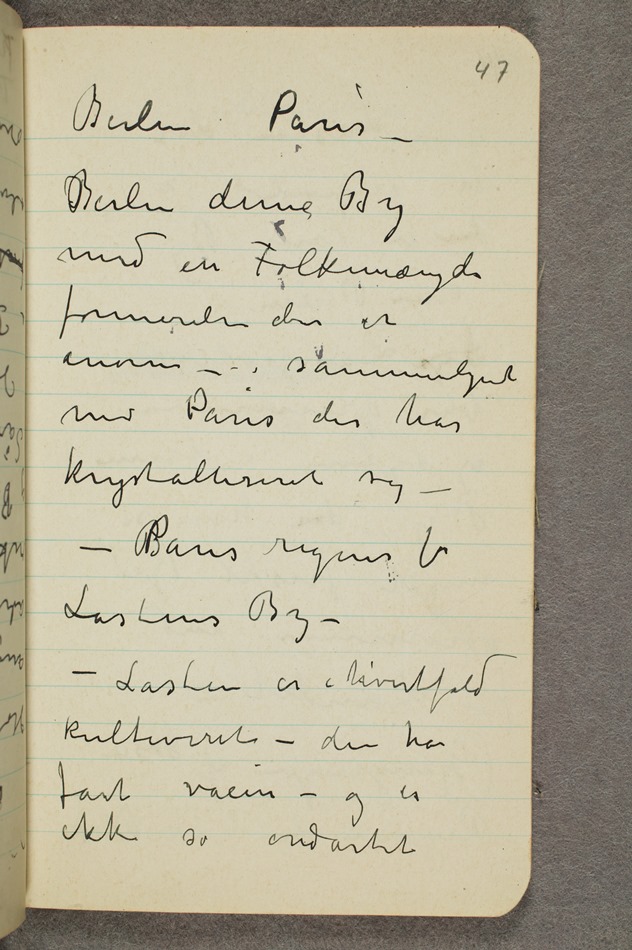 47
Berlin Paris –
Berlin denne By
med en Folkemængde
formerelse der er
enorm – . . sammenlignet
med Paris der har
krystalliseret sig –
– Paris regnes for
Lastens By –
– Lasten er i hvertfald
kultiveret – den har
fået vacin – og er
ikke så ondartet